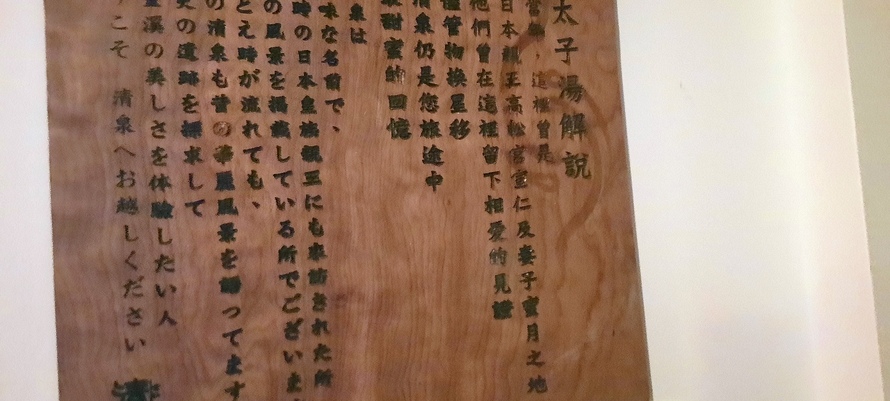 太子湯解說
這裡曾是
日本親王高松宮宣仁及妻子蜜月之地
他們曾在這裡留下相愛的見證
儘管物換星移
清泉仍是您旅途中
最甜蜜的回憶
泉は
味な名前で、
時の日本皇族親王にも来訪された所
の風景を掲載している所でございま
とえ時が流れても、
の清泉も昔の華麗風景を語ってます
史の遺跡を探求して
溪の美しさを体験したい人
うこそ 清泉へお越しください
清